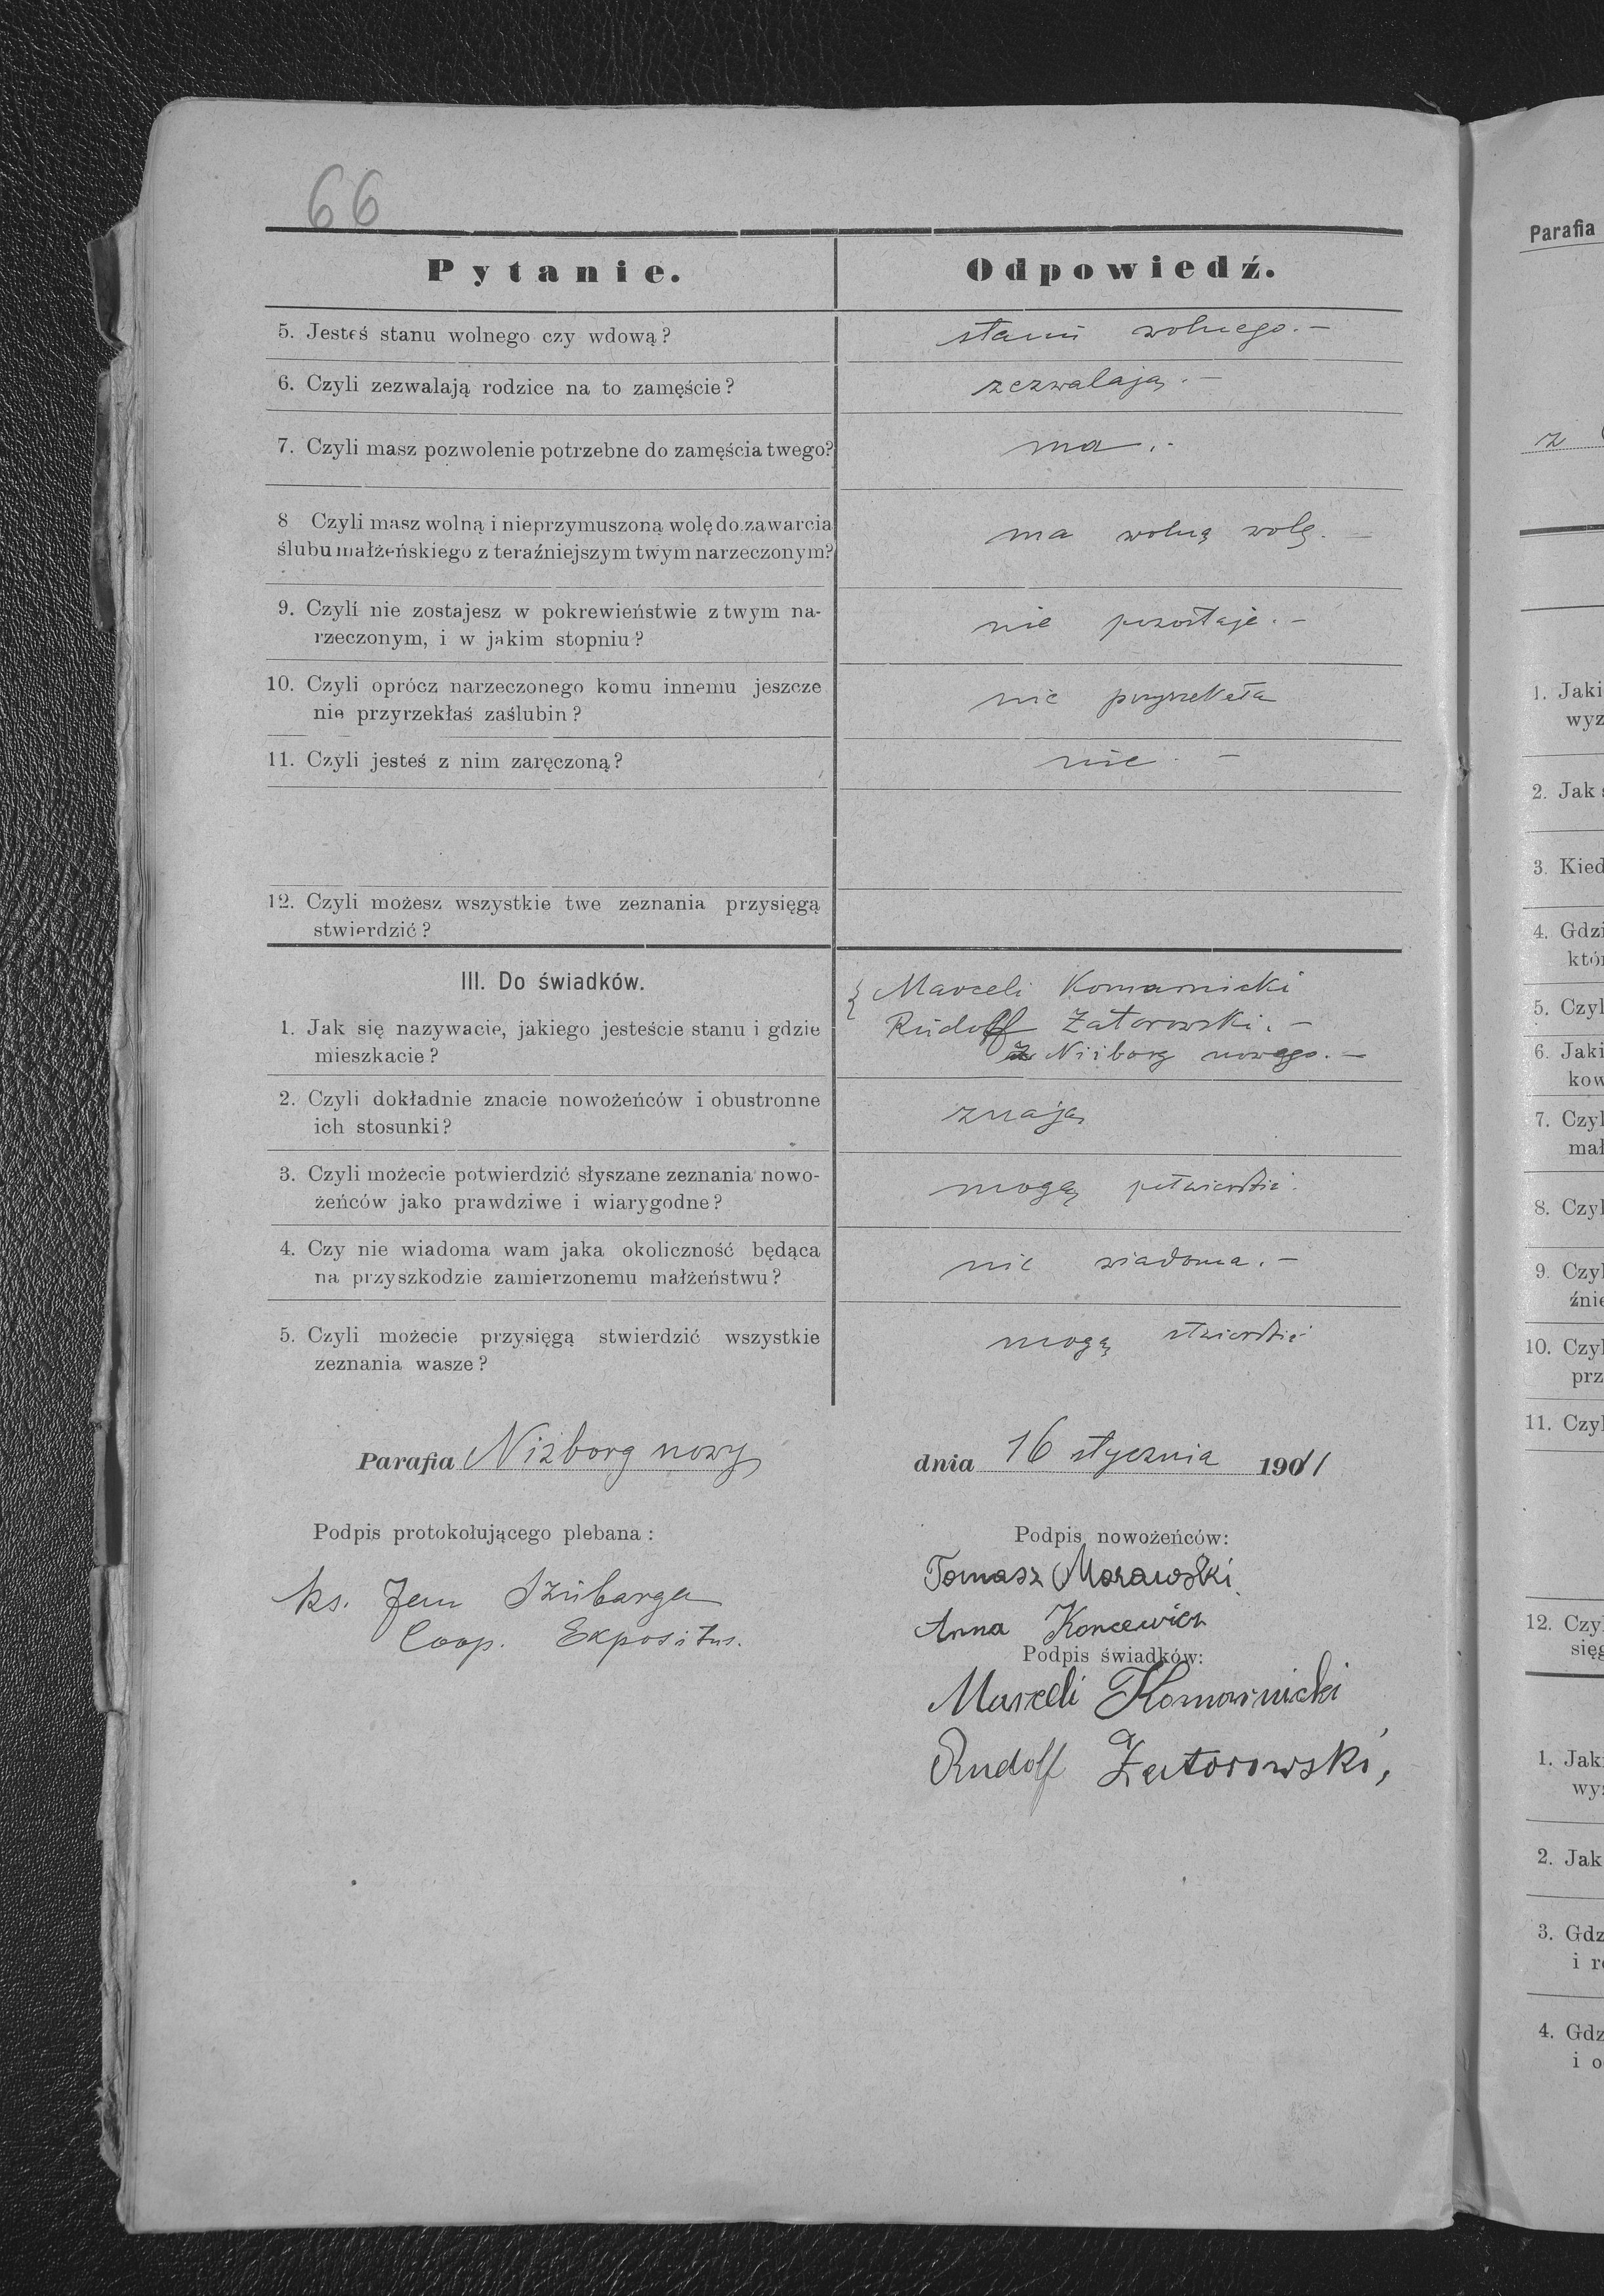 66
Pytanie.
Odpowiedź.
5. Jesteś stanu wolnego czy wdową?
stanu wolnego. —
6. Czyli zezwalają rodzice na to zamęście?
zezwalają. —
7. Czyli masz pozwolenie potrzebne do zamęścia twego?
ma. -
8 Czyli masz wolną i nieprzymuszoną wolę do zawarcia
ślubu małżeńskiego z teraźniejszym twym narzeczonym?
ma wolną wolę. —
9. Czyli nie zostajesz w pokrewieństwie z twym na-
rzeczonym, i w jakim stopniu?
nie pozostaje. —
10. Czyli oprócz narzeczonego komu innemu jeszcze
nie przyrzekłaś zaślubin?
nie przyrzekała
11. Czyli jesteś z nim zaręczoną?
nie. —
12. Czyli możesz wszystkie twe zeznania przysięgą
stwierdzić?
III. Do świadków.
1. Jak się nazywacie, jakiego jesteście stanu i gdzie
mieszkacie?
Marceli Komarnicki
Rudolf Zatorowski. —
z Niżborg nowego. —
2. Czyli dokładnie znacie nowożeńców i obustronne
ich stosunki?
znają
3. Czyli możecie potwierdzić słyszane zeznania nowo-
żeńców jako prawdziwe i wiarygodne?
mogą potwierdzić.
4. Czy nie wiadoma wam jaka okoliczność będąca
na przyszkodzie zamierzonemu małżeństwu?
nie wiadoma. —
5. Czyli możecie przysięgą stwierdzić wszystkie
zeznania wasze?
mogą stwierdzić
Parafia Niżborg nowy
dnia 16 stycznia 1911
Podpis protokołującego plebana:
ks. Jan Szubarga
Coop. Expositus.
Podpis nowożeńców:
Tomasz Morawski.
Anna Koncewicz
Podpis świadków:
Marceli Komarnicki
Rudolf Zatorowski,
Parafia
z
1. Jaki
wyz
2. Jak
3. Kied
4. Gdzi
któr
5. Czyl
6. Jaki
kow
7. Czyl
mał
8. Czyl
9. Czyl
źnie
10. Czyl
prz
11. Czyl
12. Czyl
sięg
1. Jak
wys
2. Jak
3. Gdz
i ro
4. Gdz
i o